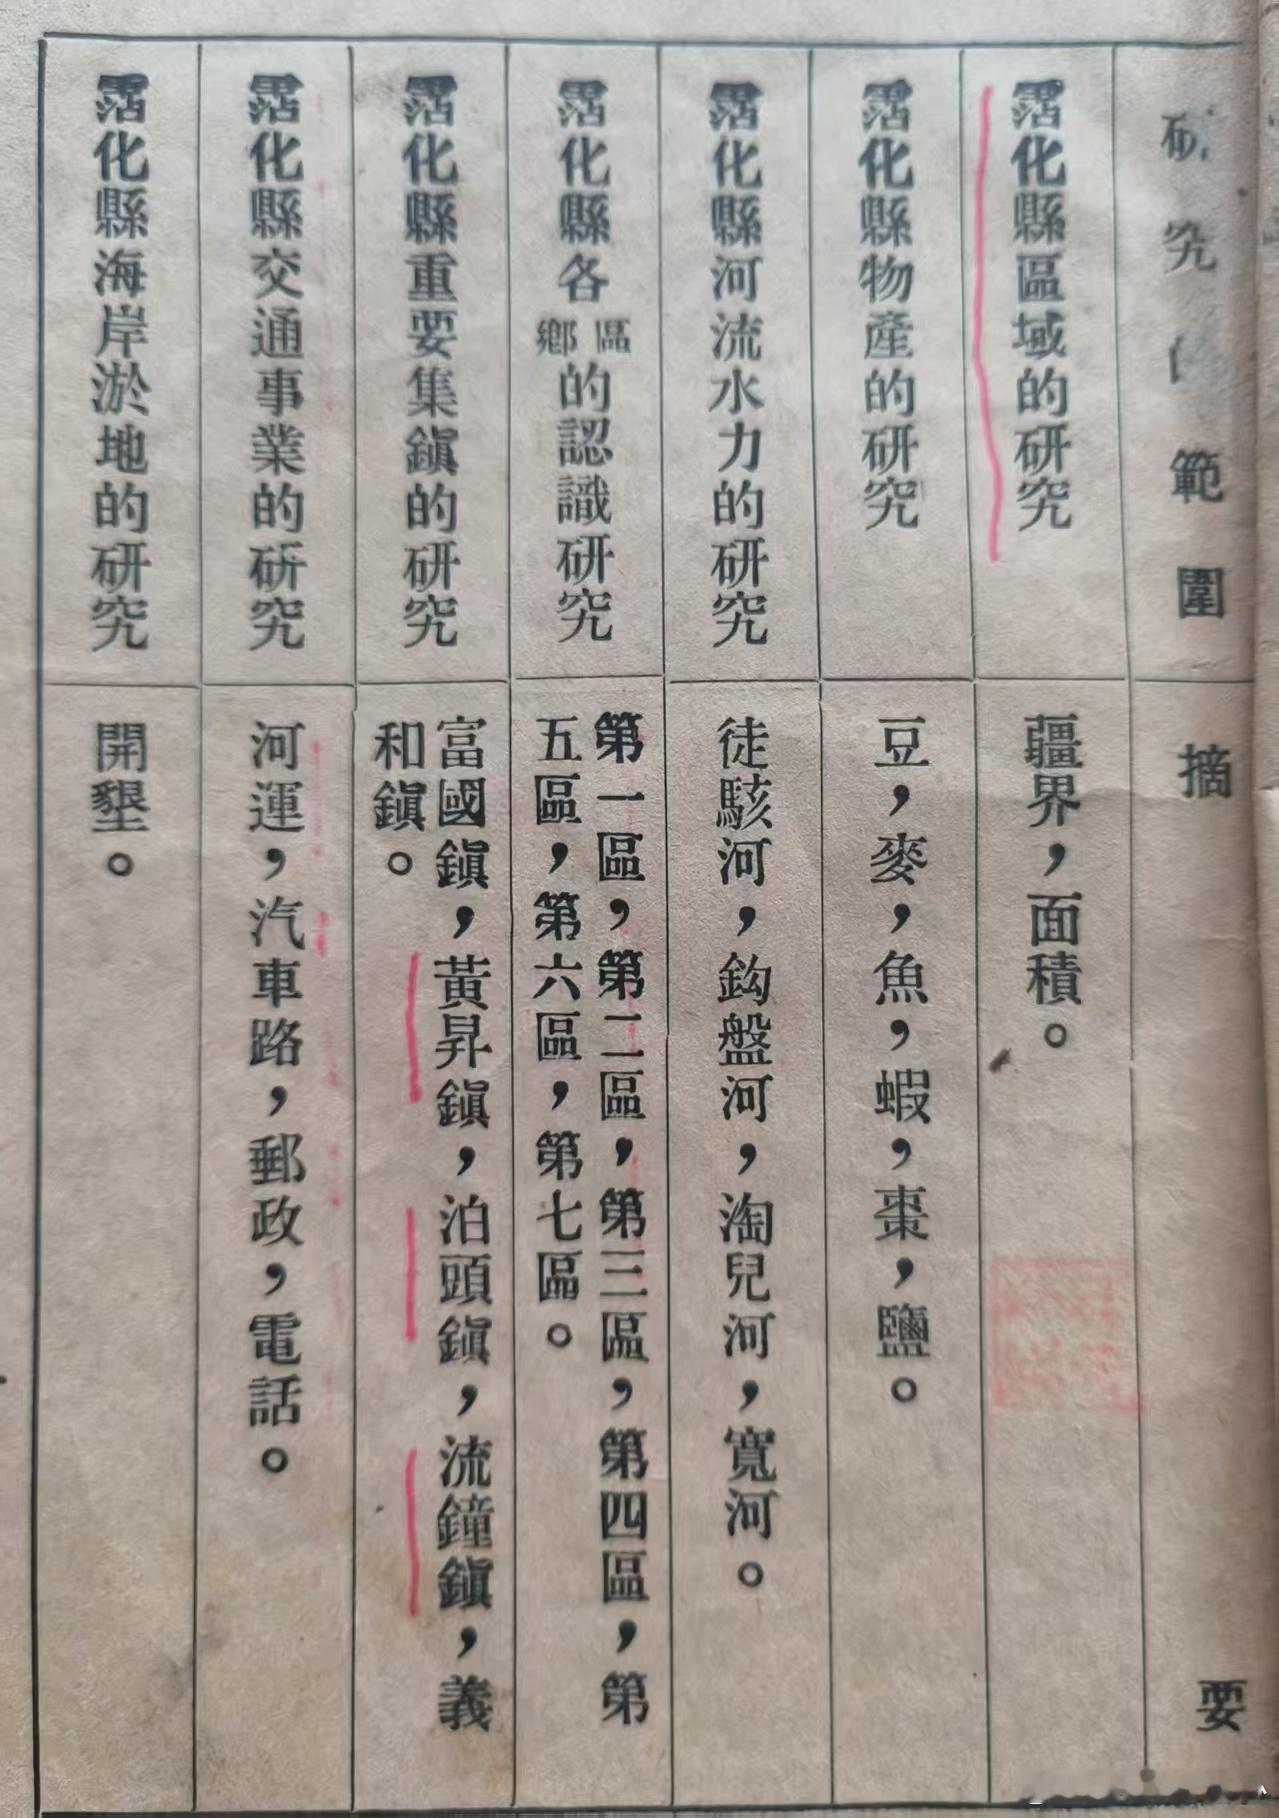 研究的範圍
摘要
霑化縣區域的研究
疆界，面積。
霑化縣物產的研究
豆，麥，魚，蝦，棗，鹽。
霑化縣河流水力的研究
徒駭河，鈎盤河，淘兒河，寬河。
霑化縣各區鄉的認識研究
第一區，第二區，第三區，第四區，第
五區，第六區，第七區。
霑化縣重要集鎭的研究
富國鎭，黃昇鎭，泊頭鎭，流鐘鎭，義
和鎭。
霑化縣交通事業的研究
河運，汽車路，郵政，電話。
霑化縣海岸淤地的研究
開墾。